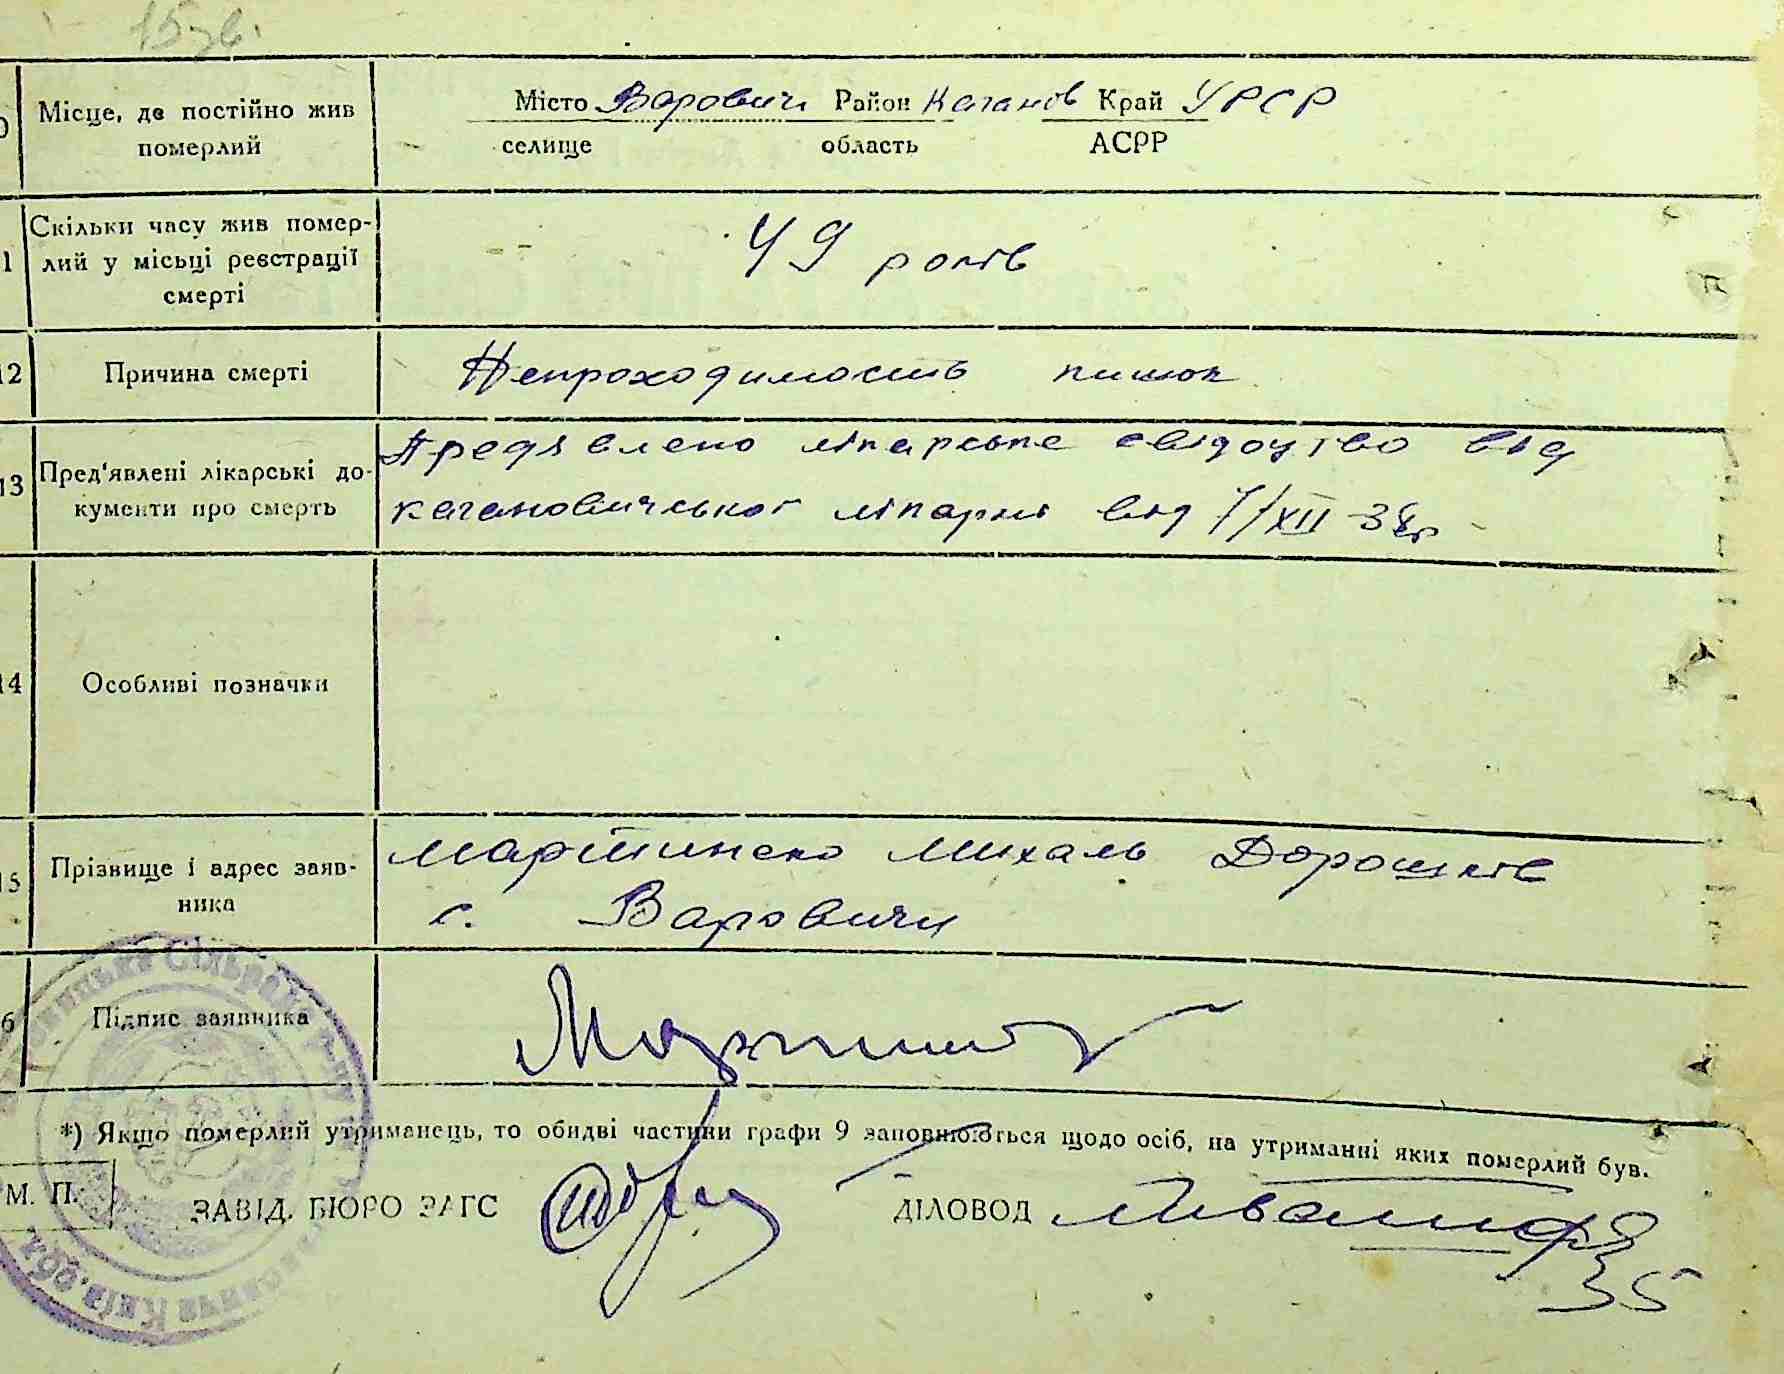 15 зв.
Місце, де постійно жив
померлий
Місто Варовичі Район Каганов Край УРСР
селище область АСРР
Скільки часу жив помер-
лий у місьці реєстрації
смерті
49 років
12 Причина смерті Непроходимость кишок
13 Пред'явлені лікарські до-
кументи про смерть
Предявлено лікарське свідоцтво від
кагановичської лікарні від 7/XII-38р
14 Особливі позначки
15 Прізвище і адрес заяв-
ника
Мартиненко Михаль Дорошків
с. Варовичи
6 Підпис заявника
*) Якщо померлий утриманець, то обидві частини графи 9 заповнюються щодо осіб, на утриманні яких померлий був.
М. П. ЗАВІД. БЮРО ЗАГС ДІЛОВОД
35